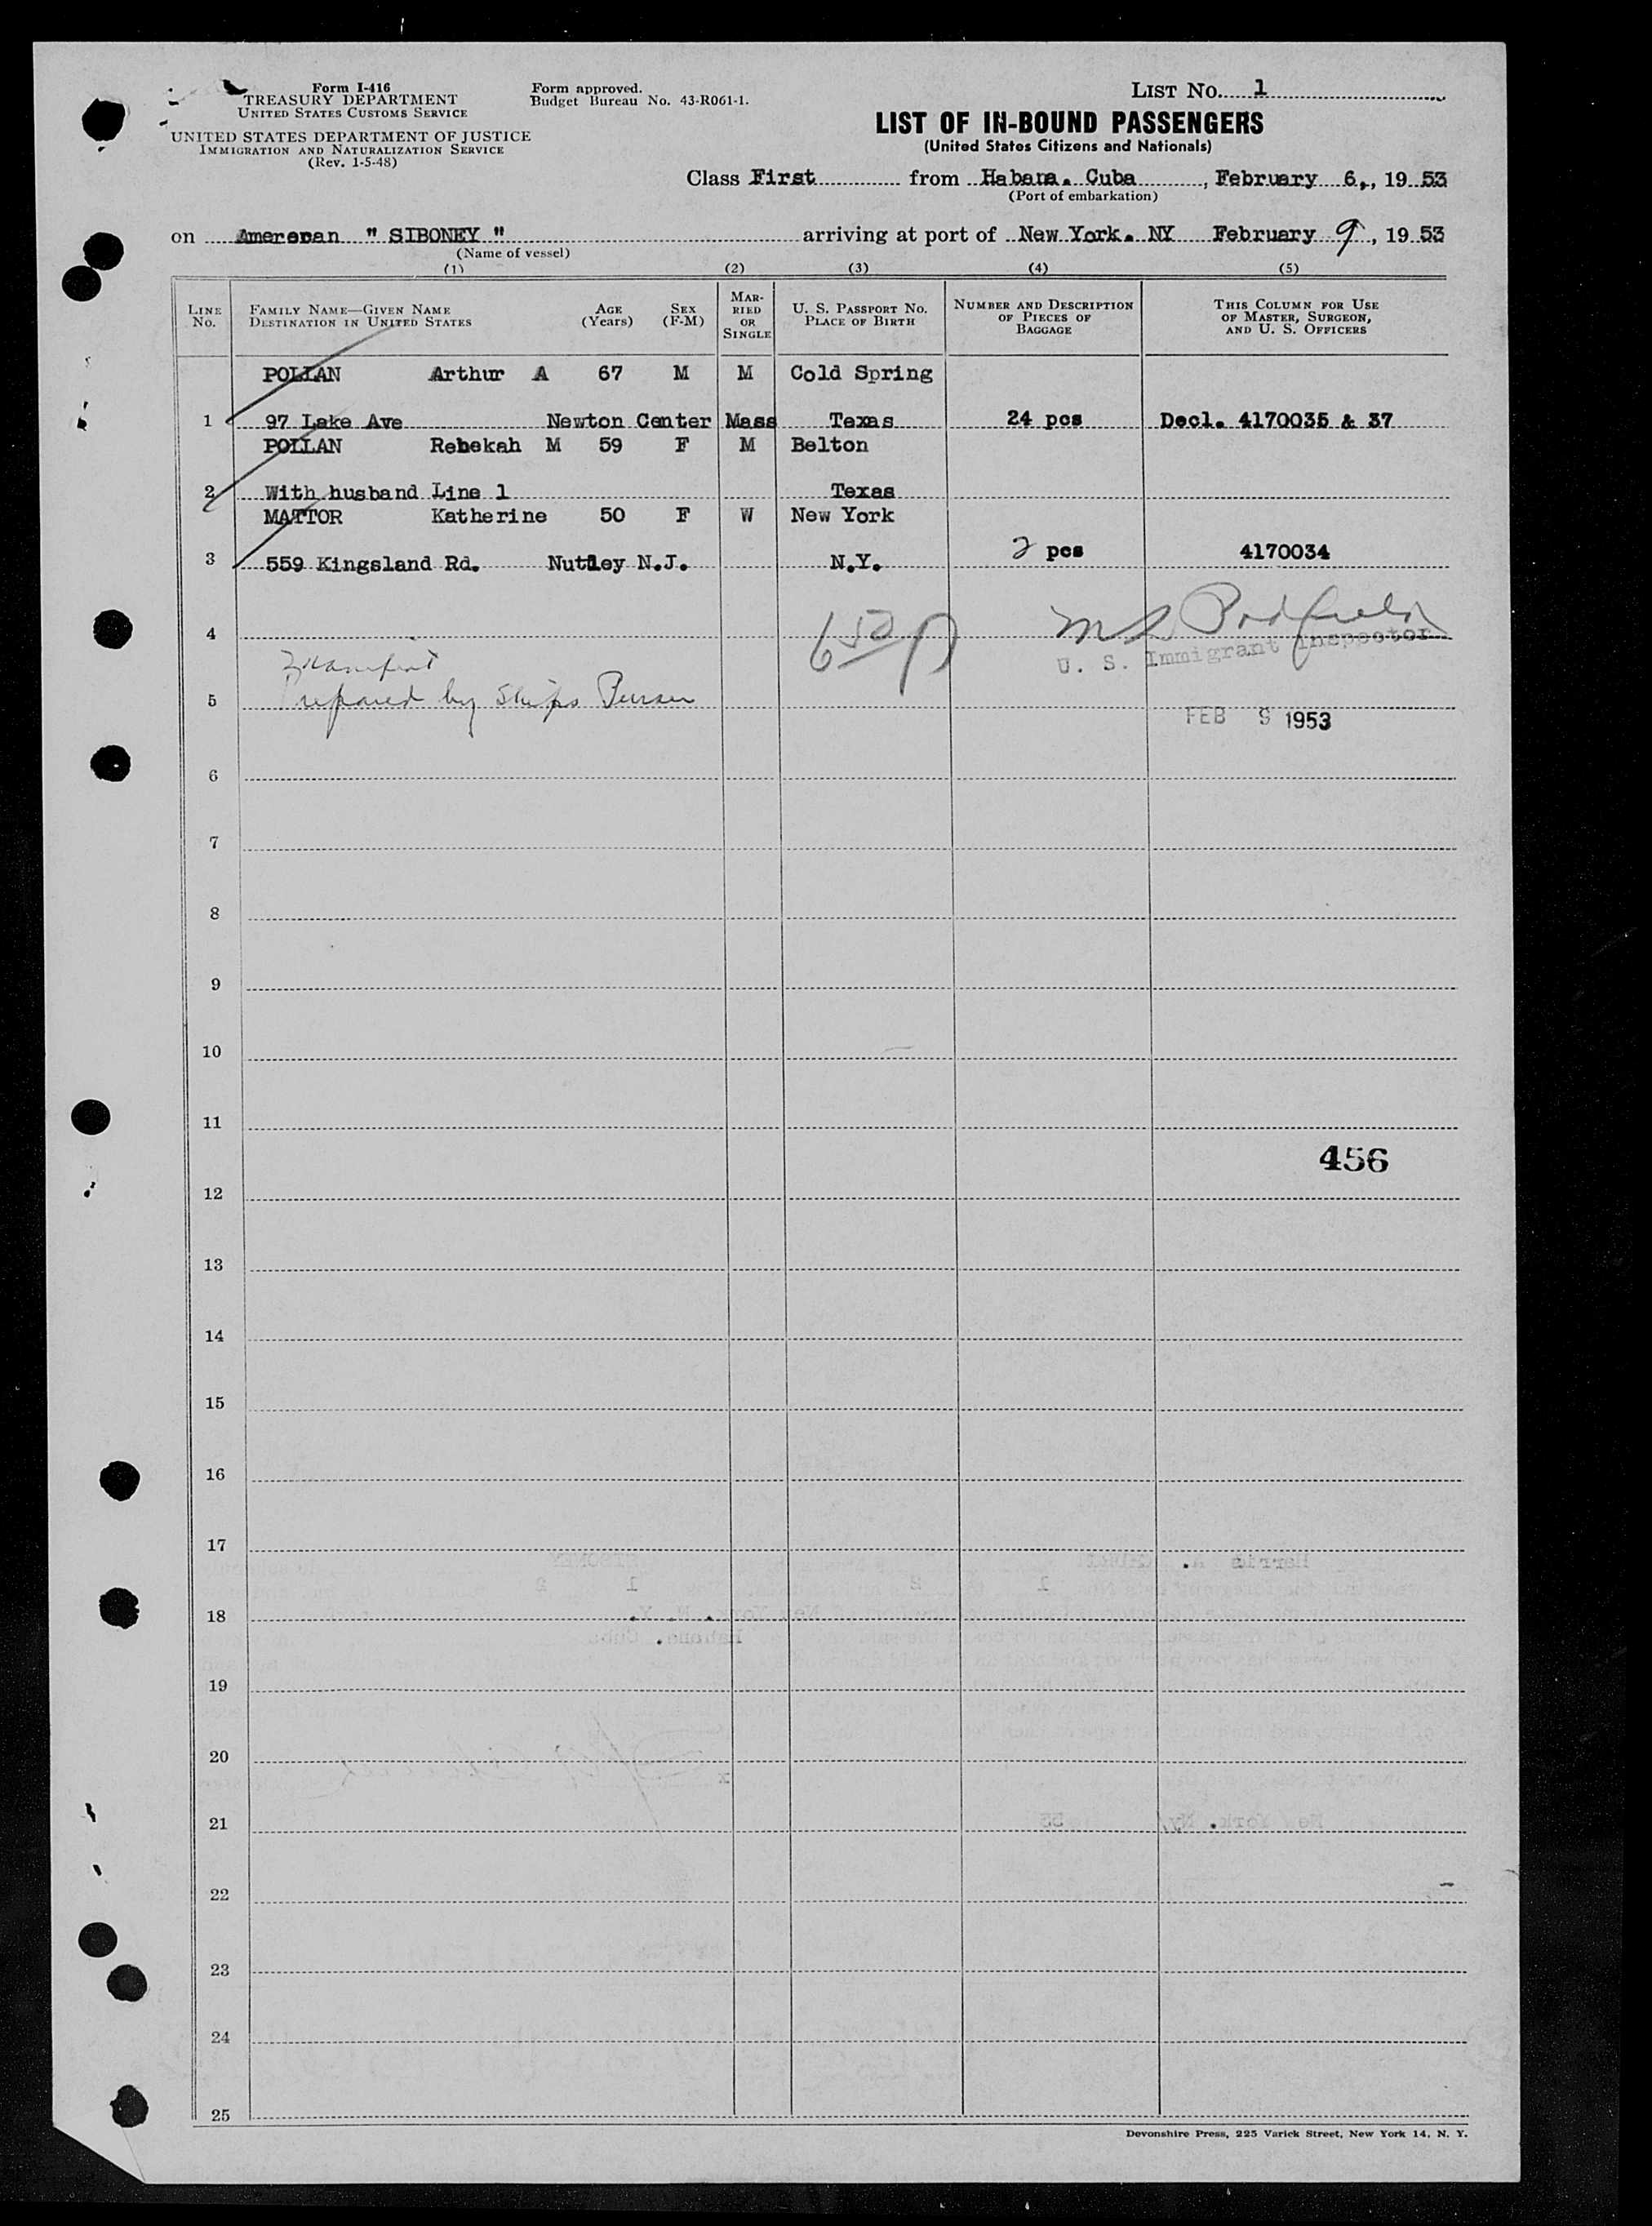 Form I-416
TREASURY DEPARTMENT
UNITED STATES CUSTOMS SERVICE
UNITED STATES DEPARTMENT OF JUSTICE
IMMIGRATION AND NATURALIZATION SERVICE
(Rev. 1-5-48)
Form approved.
Budget Bureau No. 43-R061-1.
LIST No. 1
LIST OF IN-BOUND PASSENGERS
(United States Citizens and Nationals)
Class First from Habana. Cuba, February 6,, 19 53
(Port of embarkation)
on Amerσnan " SIBONEY " arriving at port of New York. NY February 9, 19 53
(Name of vessel)
(1) (2) (3) (4) (5)
LINE No. FAMILY NAME—GIVEN NAME DESTINATION IN UNITED STATES AGE (Years) SEX (F-M) MARRIED OR SINGLE U. S. PASSPORT NO. PLACE OF BIRTH NUMBER AND DESCRIPTION OF PIECES OF BAGGAGE THIS COLUMN FOR USE OF MASTER, SURGEON, AND U. S. OFFICERS
POLLAN Arthur A 67 M M Cold Spring
1 97 Lake Ave Newton Center Mass Texas 24 pcs Decl. 4170035 & 37
POLLAN Rebekah M 59 F M Belton
2 With husband Line 1 Texas
MATTOR Katherine 50 F W New York
3 559 Kingsland Rd. Nutley N.J. N.Y. 2 pcs 4170034
4
U. S. Immigrant Inspector
Manifest
5 Prepared by Ships Purser
FEB 9 1953
6
7
8
9
10
11
456
12
13
14
15
16
17
18
19
20
21
22
23
24
25
Devonshire Press, 225 Varick Street, New York 14, N. Y.